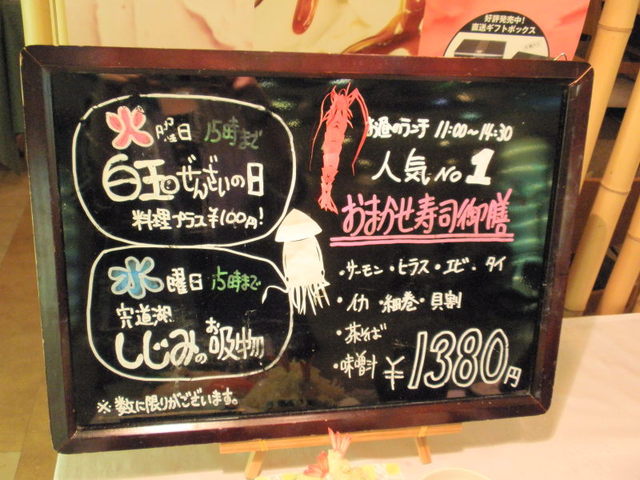 好評発売中!
直送ギフトボックス
火曜日 15時まで
白玉ぜんざいの日
料理プラス¥100円!
水曜日 15時まで
宍道湖
しじみのお吸物
※数に限りがございます。
お昼のランチ 11:00~14:30
人気No1
おまかせ寿司御膳
・サーモン・ヒラス・エビ・タイ
・イカ・細巻・貝割
・茶そば
・味噌汁 ¥1380円